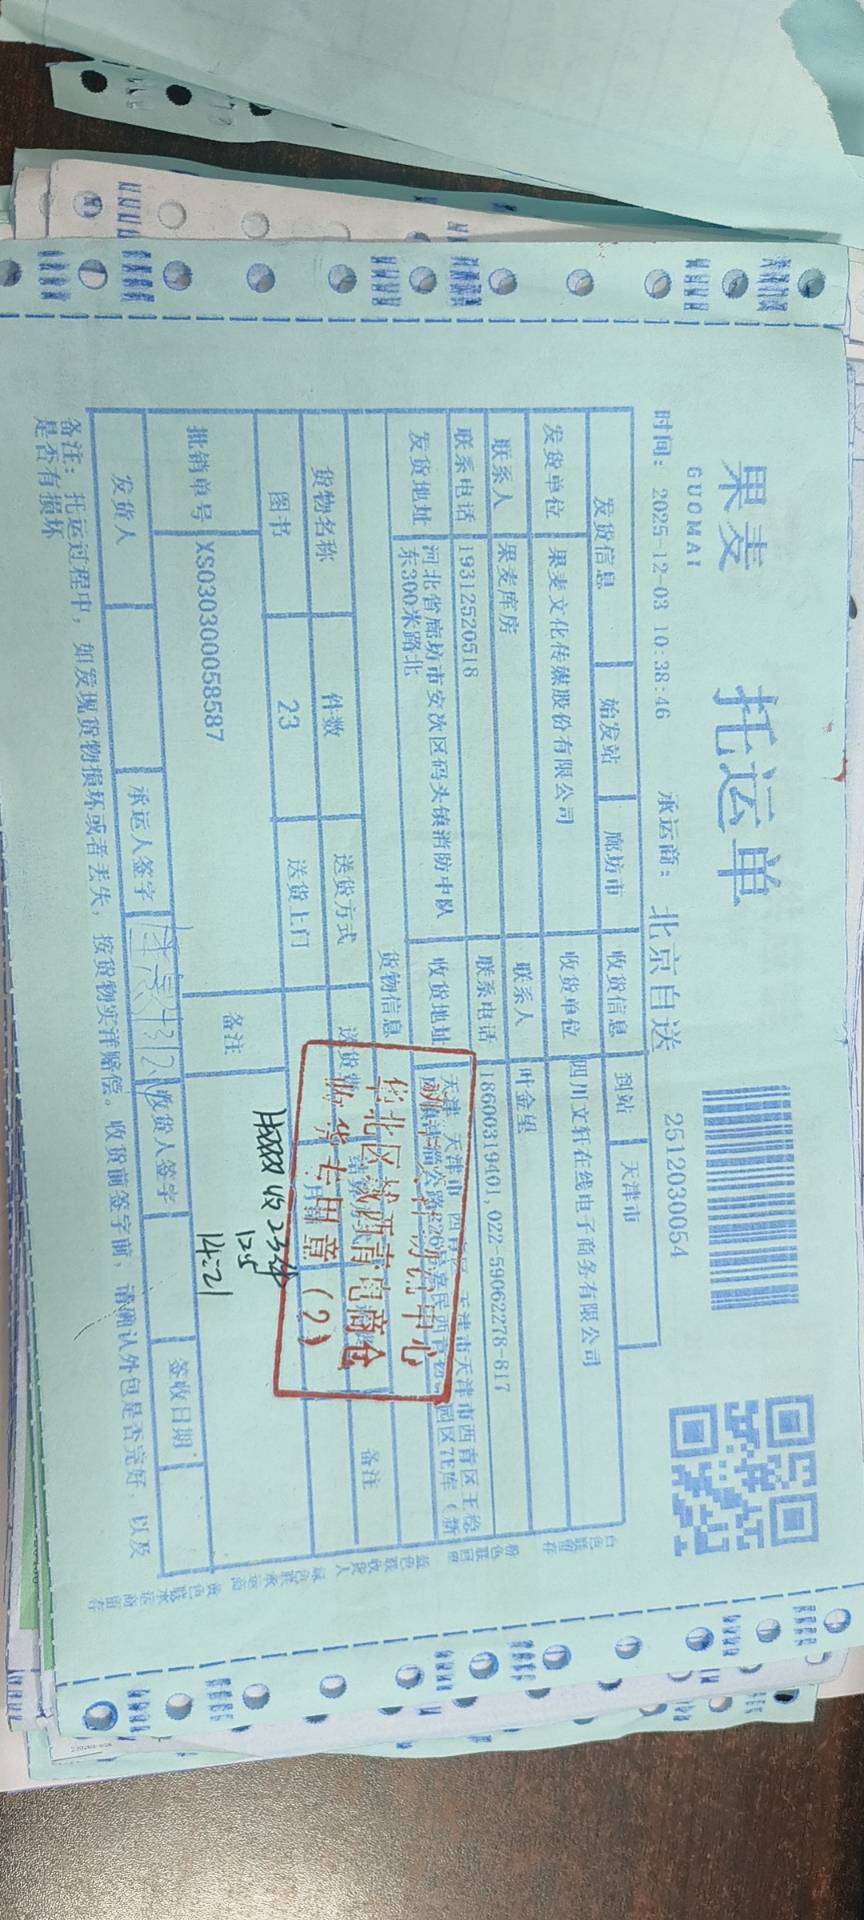 果麦
GUOMAI
托运单
时间: 2025-12-03 10:38:46 承运商: 北京自送 2512030054
发货信息 始发站 廊坊市 收货信息 到站 天津市
发货单位 果麦文化传媒股份有限公司 收货单位 四川文轩在线电子商务有限公司
联系人 果麦库房 联系人 叶金望
联系电话 19312520518 联系电话 18600319401, 022-59062278-817
发货地址 河北省廊坊市安次区码头镇消防中队东300米路北 收货地址 天津 天津市 西青区 天津市天津市西青区王
货物信息
货物名称 件数 送货方式 送货费 备注
图书 23 送货上门
批销单号 XS030300058587 备注
华北区域西青电商仓
收货专用章(2)
收 23件
12.5
14:21
发货人 承运人签字 收货人签字 签收日期:
备注: 托运过程中, 如发现货物损坏或者丢失, 按货物实洋赔偿。收货前签字前, 请确认外包是否完好, 以及
是否有损坏
白色联留存
粉色联回单
蓝色联收货人
绿色联承运商
黄色联承运商留存